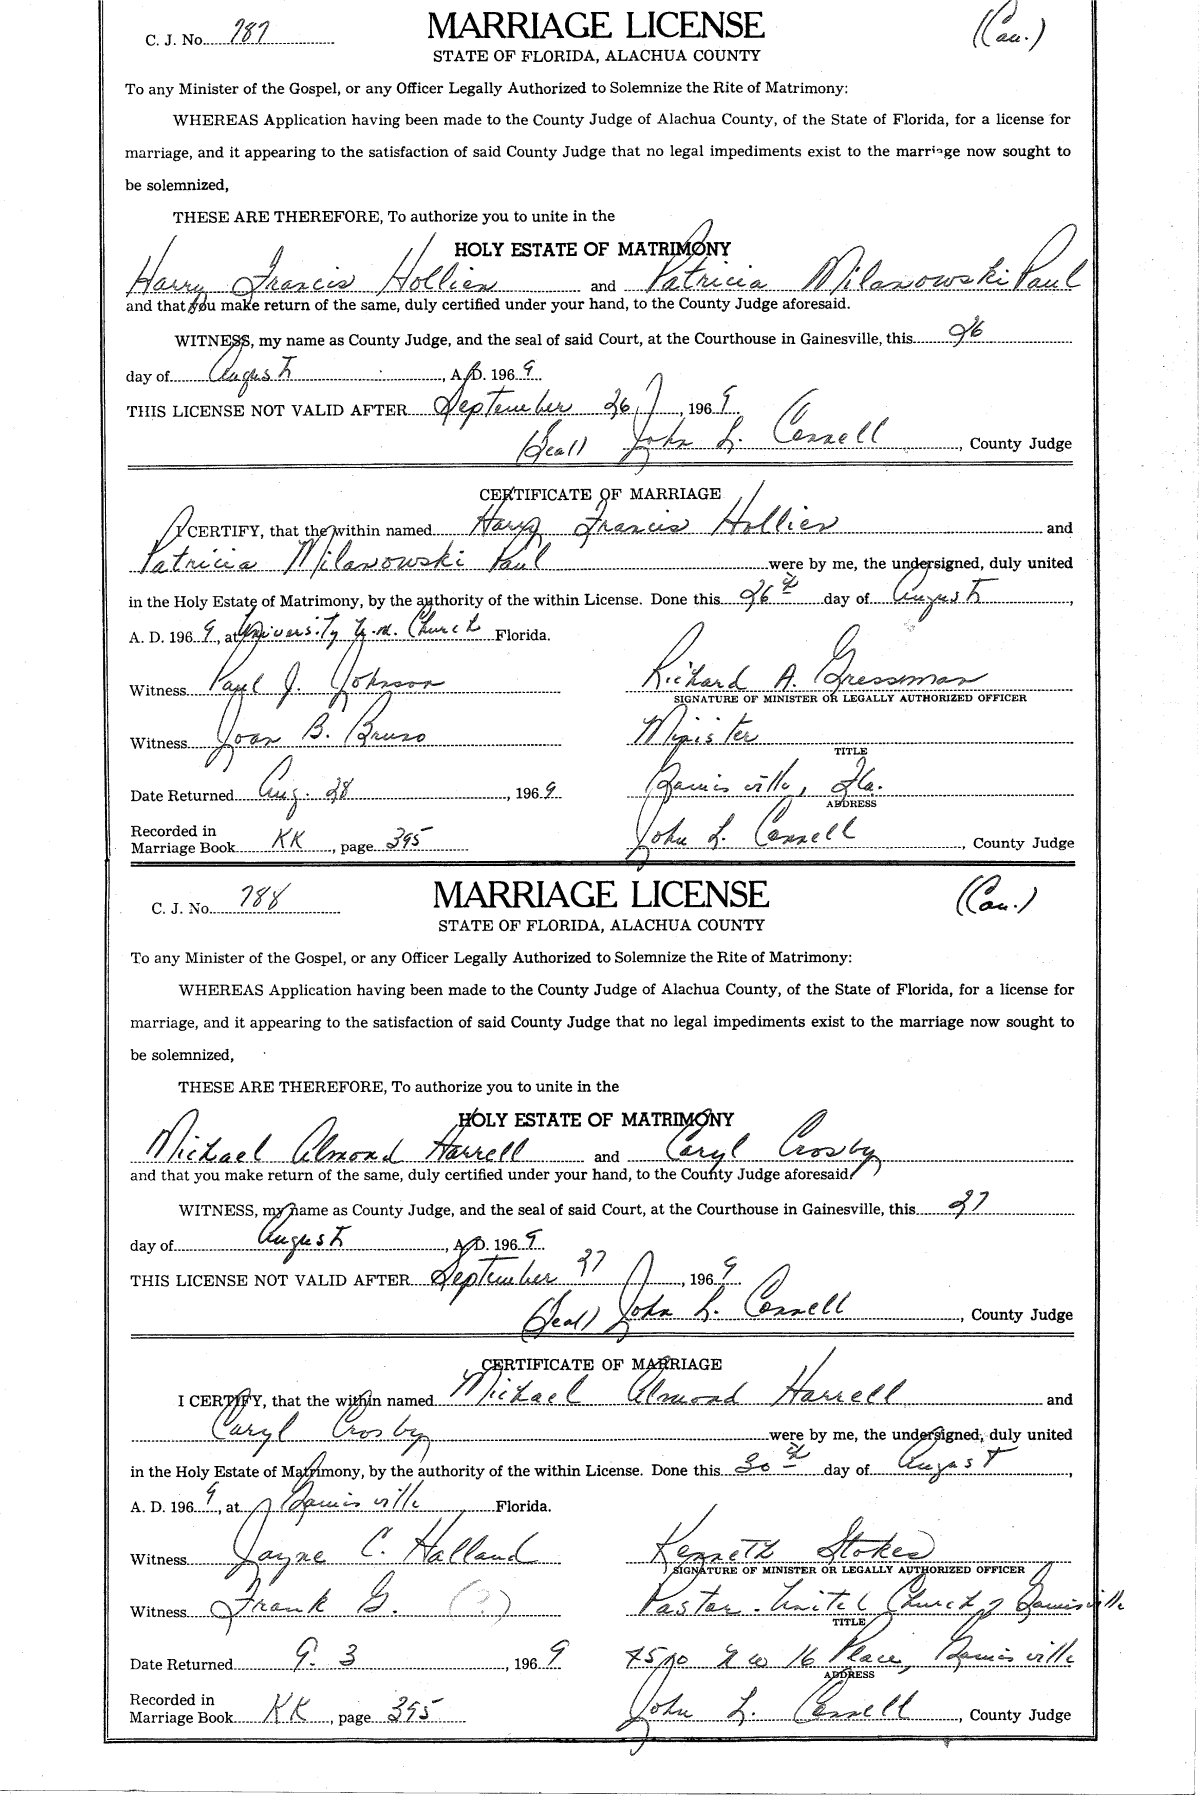 C. J. No. 787 MARRIAGE LICENSE (Cau.)
STATE OF FLORIDA, ALACHUA COUNTY
To any Minister of the Gospel, or any Officer Legally Authorized to Solemnize the Rite of Matrimony:
WHEREAS Application having been made to the County Judge of Alachua County, of the State of Florida, for a license for
marriage, and it appearing to the satisfaction of said County Judge that no legal impediments exist to the marriage now sought to
be solemnized,
THESE ARE THEREFORE, To authorize you to unite in the
HOLY ESTATE OF MATRIMONY
Harry Francis Hollien and Patricia Milanowski Paul
and that you make return of the same, duly certified under your hand, to the County Judge aforesaid.
WITNESS, my name as County Judge, and the seal of said Court, at the Courthouse in Gainesville, this 26
day of August, A. D. 1969
THIS LICENSE NOT VALID AFTER September 26, 1969
(Seal) John L. Connell, County Judge
CERTIFICATE OF MARRIAGE
I CERTIFY, that the within named Harry Francis Hollien and
Patricia Milanowski Paul were by me, the undersigned, duly united
in the Holy Estate of Matrimony, by the authority of the within License. Done this 26th day of August,
A. D. 1969, at University Church Florida.
Witness Paul J. Johnson Richard A. Gressman
SIGNATURE OF MINISTER OR LEGALLY AUTHORIZED OFFICER
Witness Joan B. Bruno Minister
TITLE
Date Returned Aug. 28, 1969 Gainesville, Fla.
ADDRESS
Recorded in
Marriage Book KK, page 395 John L. Connell, County Judge
C. J. No. 788 MARRIAGE LICENSE (Cau.)
STATE OF FLORIDA, ALACHUA COUNTY
To any Minister of the Gospel, or any Officer Legally Authorized to Solemnize the Rite of Matrimony:
WHEREAS Application having been made to the County Judge of Alachua County, of the State of Florida, for a license for
marriage, and it appearing to the satisfaction of said County Judge that no legal impediments exist to the marriage now sought to
be solemnized,
THESE ARE THEREFORE, To authorize you to unite in the
HOLY ESTATE OF MATRIMONY
Michael Almond Harrell and Caryl Crosby
and that you make return of the same, duly certified under your hand, to the County Judge aforesaid.
WITNESS, my name as County Judge, and the seal of said Court, at the Courthouse in Gainesville, this 27
day of August, A. D. 1969
THIS LICENSE NOT VALID AFTER September 27, 1969
(Seal) John L. Connell, County Judge
CERTIFICATE OF MARRIAGE
I CERTIFY, that the within named Michael Almond Harrell and
Caryl Crosby were by me, the undersigned, duly united
in the Holy Estate of Matrimony, by the authority of the within License. Done this 30th day of August,
A. D. 1969, at Gainesville Florida.
Witness Jayne C. Halland Kenneth Stokes
SIGNATURE OF MINISTER OR LEGALLY AUTHORIZED OFFICER
Witness Frank G. (?) Pastor - United Church of Gainesville
TITLE
Date Returned 9. 3, 1969 NW 16 Place, Gainesville
ADDRESS
Recorded in
Marriage Book KK, page 395 John L. Connell, County Judge